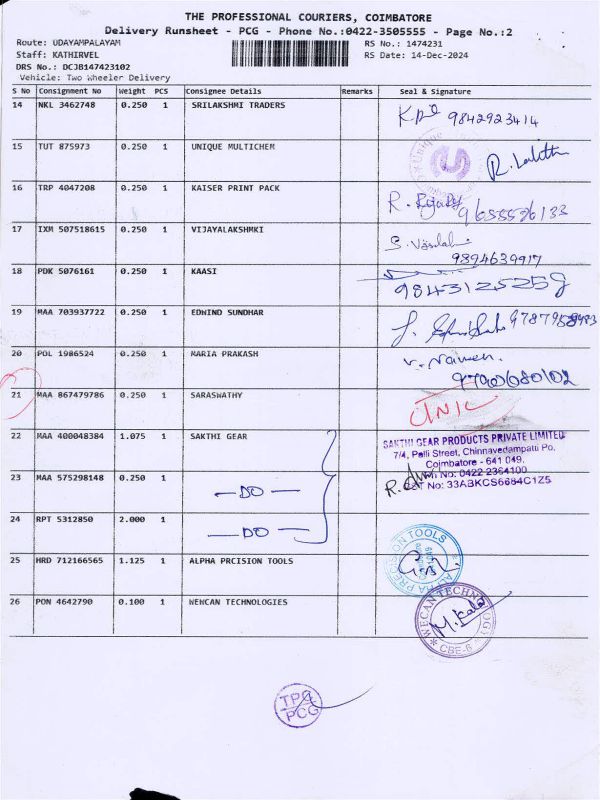 THE PROFESSIONAL COURIERS, COIMBATORE
Delivery Runsheet - PCG - Phone No.:0422-3505555 - Page No.:2
Route: UDAYAMPALAYAM RS No.: 1474231
Staff: KATHIRVEL RS Date: 14-Dec-2024
DRS No.: DCJB147423102
Vehicle: Two Wheeler Delivery
S No Consignment No Weight PCS Consignee Details Remarks Seal & Signature
14 NKL 3462748 0.250 1 SRILAKSHMI TRADERS
9842923414
15 TUT 875973 0.250 1 UNIQUE MULTICHEM
Unique
R. Lalith
16 TRP 4047208 0.250 1 KAISER PRINT PACK
R.
9655526133
17 IXM 507518615 0.250 1 VIJAYALAKSHMKI
S.
9894639917
18 PDK 5076161 0.250 1 KAASI
9843125259
19 MAA 703937722 0.250 1 EDWIND SUNDHAR
20 POL 1986524 0.250 1 MARIA PRAKASH
V. Naveen.
9790080102
21 MAA 867479786 0.250 1 SARASWATHY
22 MAA 400048384 1.075 1 SAKTHI GEAR
SAKTHI GEAR PRODUCTS PRIVATE LIMITED
7/4, Palli Street, Chinnavedampatti Po,
Coimbatore - 641 049.
Ph No: 0422 2364100
GST No: 33ABKCS6684C1Z5
23 MAA 575298148 0.250 1 — DO —
24 RPT 5312850 2.000 1 — DO —
25 HRD 712166565 1.125 1 ALPHA PRCISION TOOLS
PRECISION TOOLS
26 PON 4642790 0.100 1 WENCAN TECHNOLOGIES
WECAN TECHNOLOGY
CBE-6
M. Kala
TPC
PCG